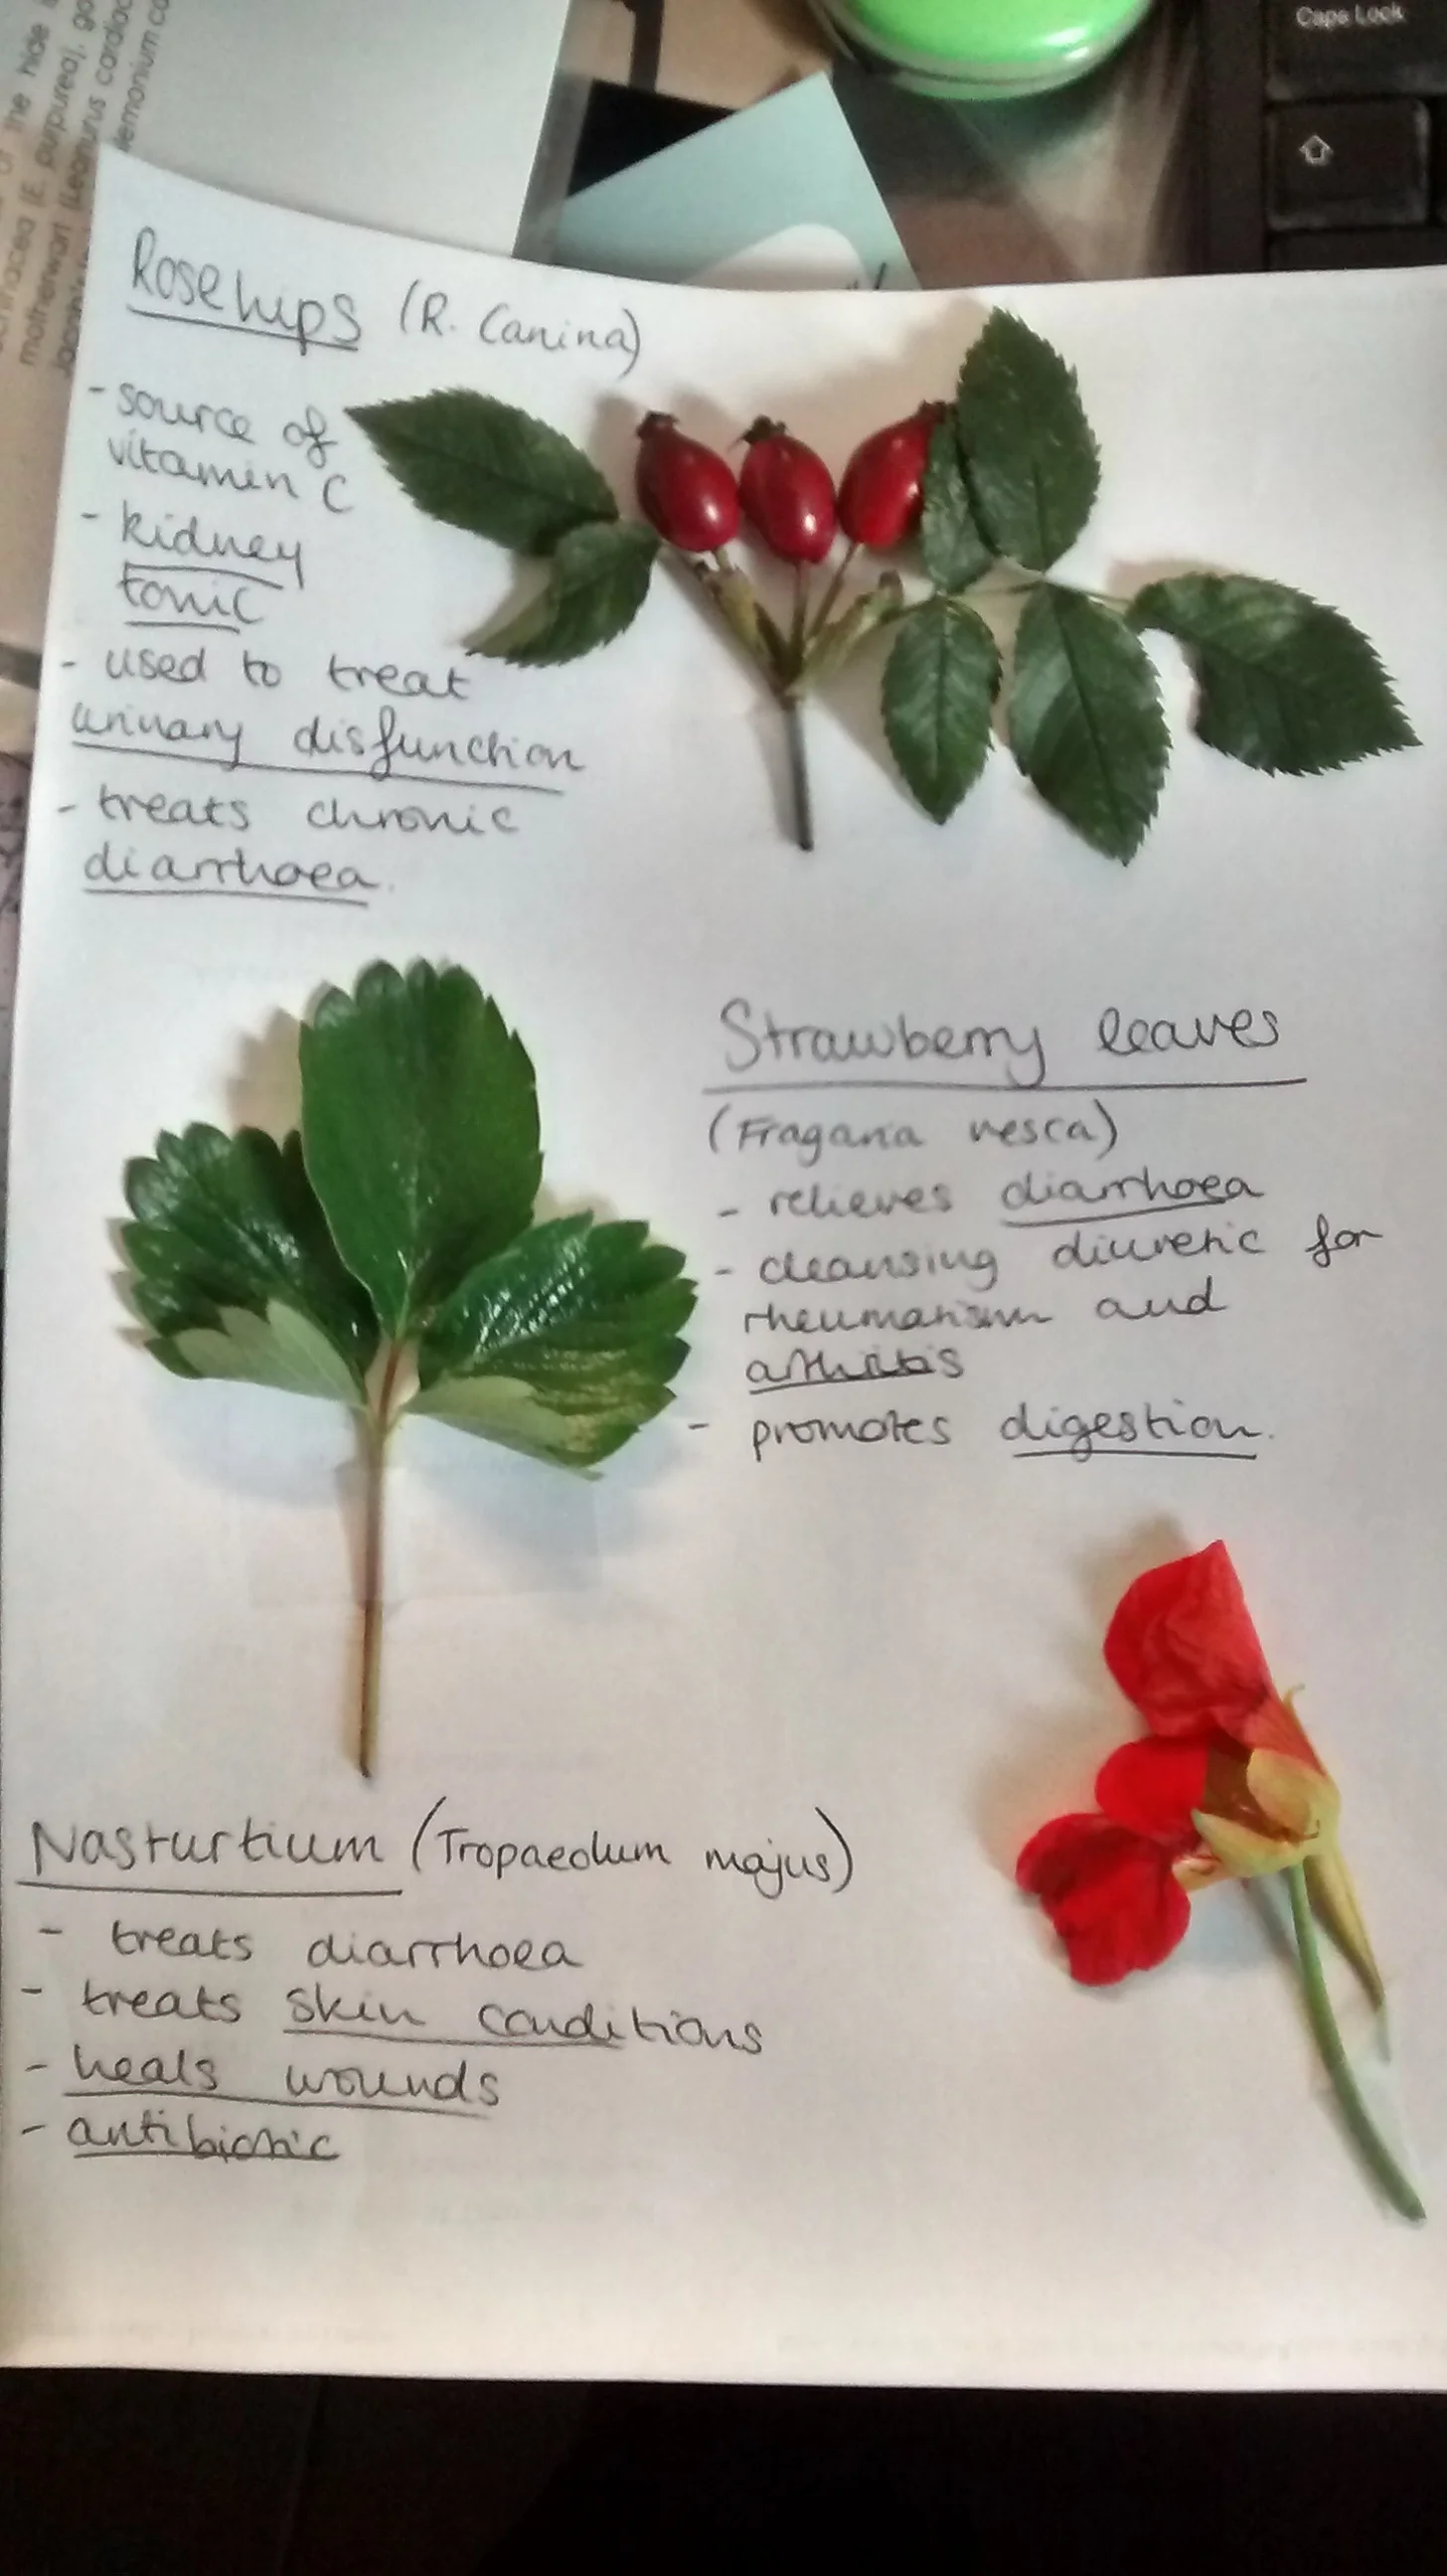 of the hide
echinacea (E. purpurea), go
motherwort (Leonurus cardiac
lemonium.co
Caps Lock
Rosehips (R. Canina)
- source of
vitamin C
- kidney
tonic
- used to treat
urinary disfunction
- treats chronic
diarrhoea.
Strawberry leaves
(Fragaria vesca)
- relieves diarrhoea
- cleansing diuretic for
rheumatism and
arthritis
- promotes digestion.
Nasturtium (Tropaeolum majus)
- treats diarrhoea
- treats skin conditions
- heals wounds
- antibiotic